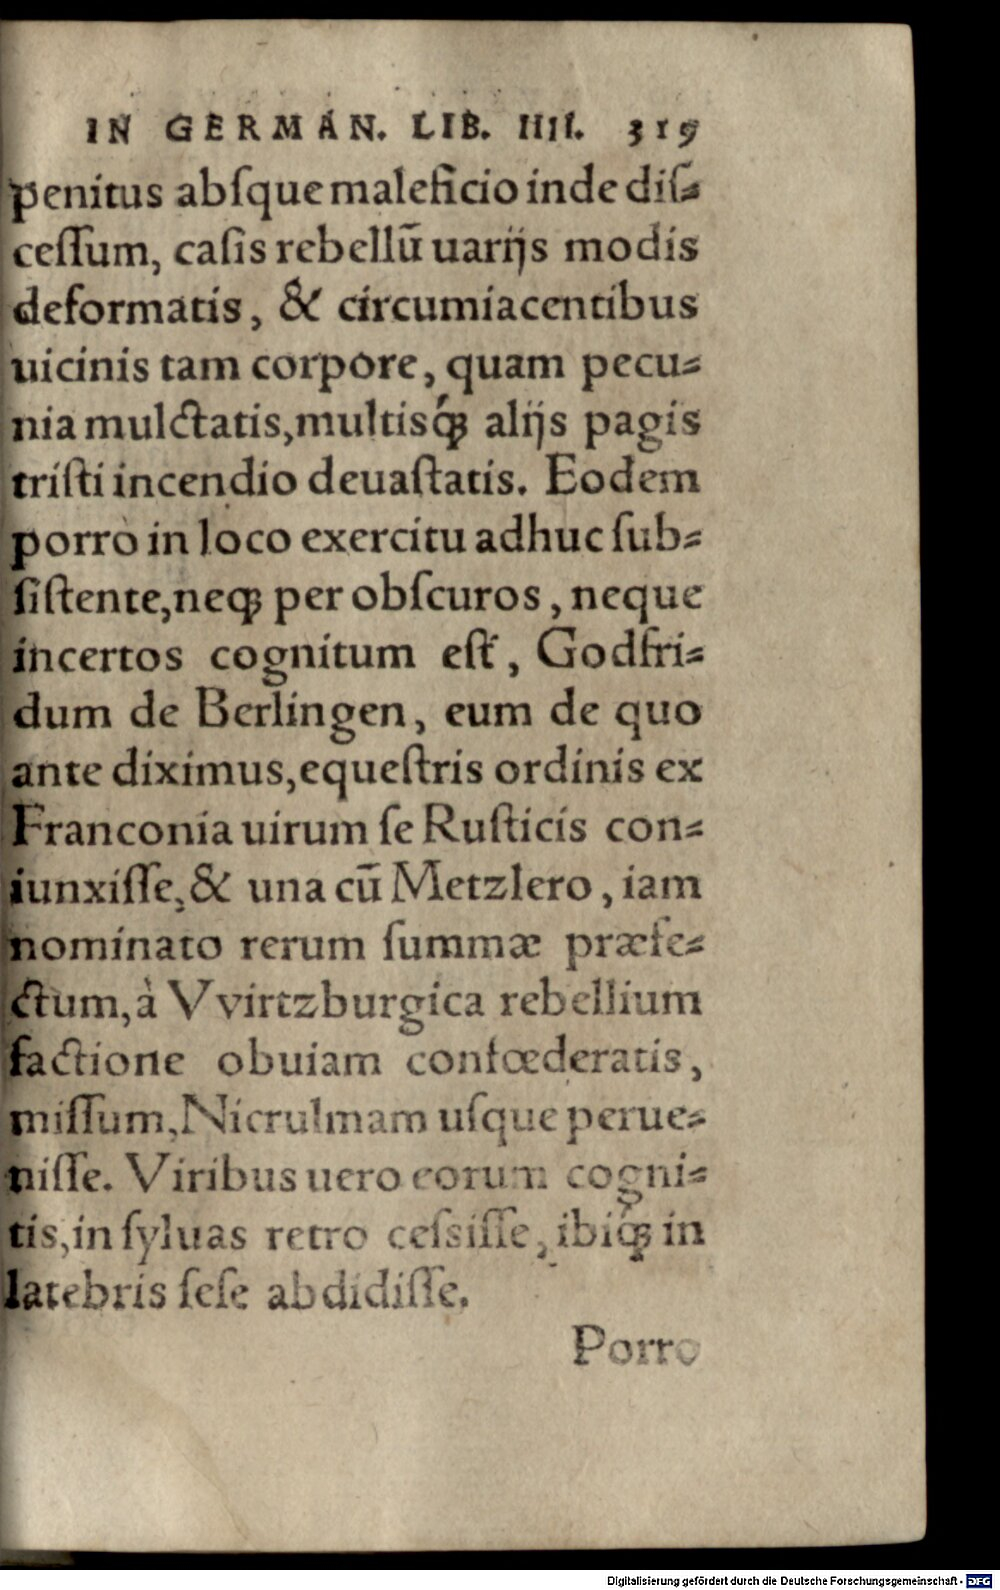 IN GERMAN. LIB. IIII. 319
penitus absque maleficio inde diſ⸗
ceſſum, caſis rebellū uarijs modis
deformatis, & circumiacentibus
uicinis tam corpore, quam pecu⸗
nia mulctatis, multisq́ꝫ alijs pagis
triſti incendio deuaſtatis. Eodem
porrò in loco exercitu adhuc ſub⸗
ſiſtente, neqꝫ per obſcuros, neque
incertos cognitum eſt, Godfri⸗
dum de Berlingen, eum de quo
ante diximus, equeſtris ordinis ex
Franconia uirum ſe Ruſticis con⸗
iunxiſſe, & una cū Metzlero, iam
nominato rerum ſummæ præfe⸗
ctum, à Vvirtzburgica rebellium
factione obuiam confœderatis,
miſſum, Nicrulmam uſque perue⸗
niſſe. Viribus uero eorum cogni⸗
tis, in ſyluas retro ceſsiſſe, ibiq́ꝫ in
latebris ſeſe abdidiſſe.
Porro
Digitalisierung gefördert durch die Deutsche Forschungsgemeinschaft - DFG